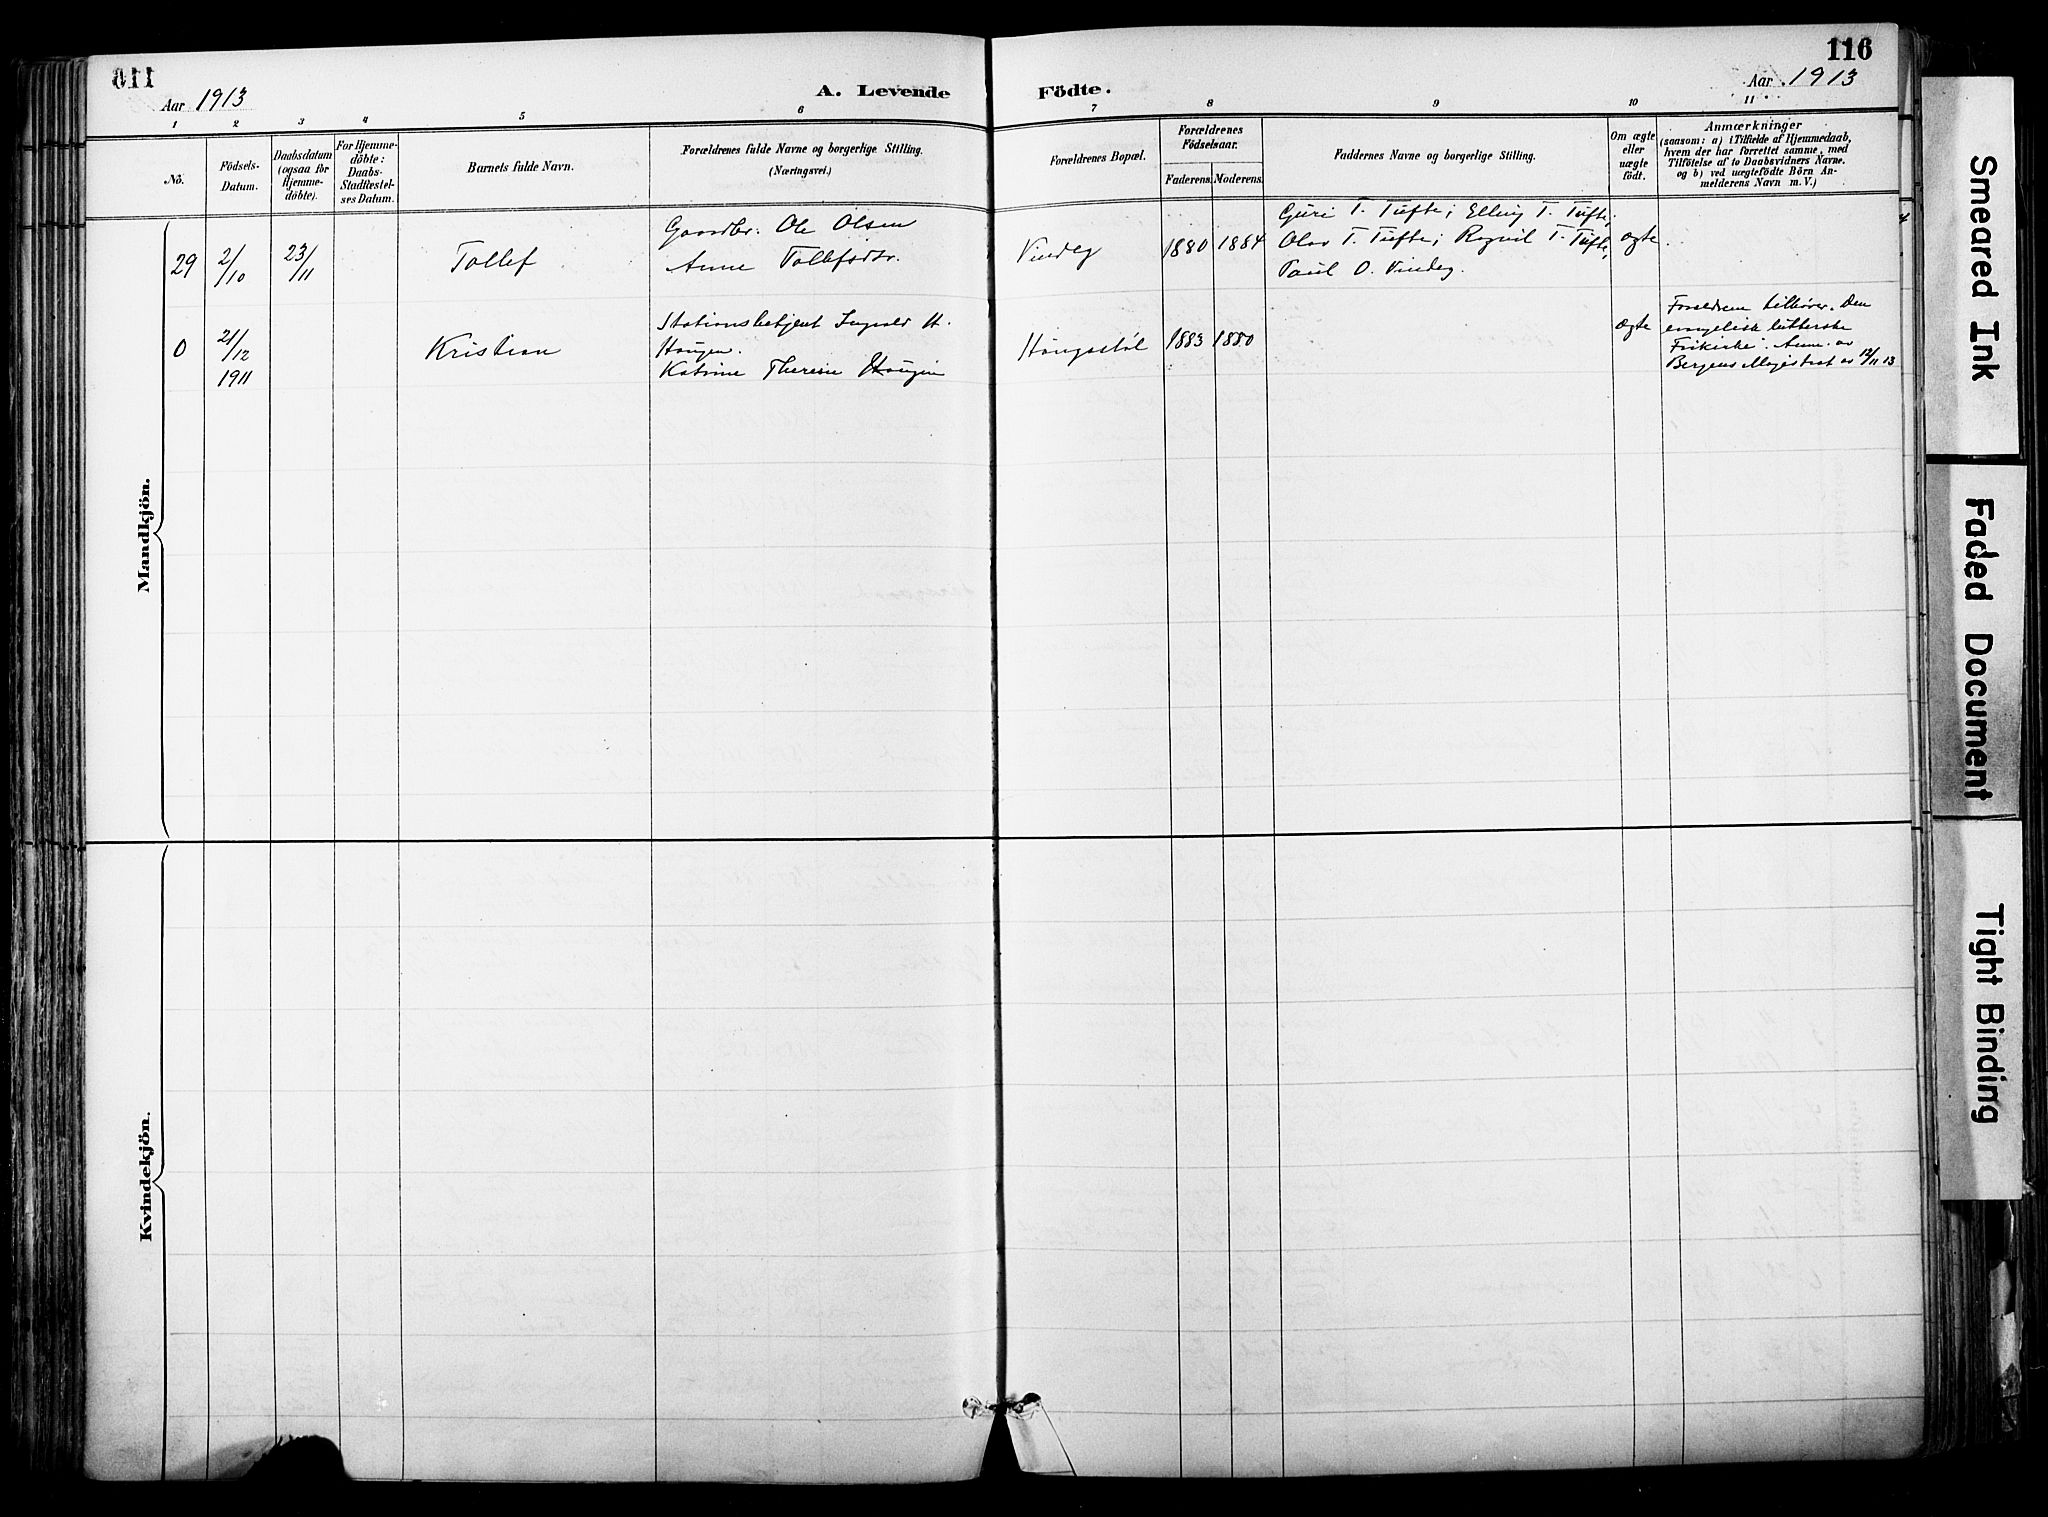 116
116
Aar 1913
A. Levende
Födte.
Aar 1913
1 2 3 4 5 6 7 8 9 10 11
No.
Födsels-
Datum.
Daabsdatum
(ogsaa for
Hjemme-
döbte).
For Hjemme-
döbte:
Daabs-
Stadfæstel-
ses Datum.
Barnets fulde Navn.
Forældrenes fulde Navne og borgerlige Stilling.
(Næringsvei.)
Forældrenes Bopæl.
Forældrenes
Födselsaar.
Faderens.
Moderens.
Faddernes Navne og borgerlige Stilling.
Om ægte
eller
uægte
födt.
Anmærkninger
(saasom: a) i Tilfælde af Hjemmedaab,
hvem der har forrettet samme, med
Tilföielse af to Daabsvidners Navne.
og b) ved uægtefödte Börn An-
melderens Navn m. V.)
Mandkjön.
29
2/10
23/11
Tollef
Gaardbr. Ole Olsen
Anne Tollefsdtr.
Vindeg
1880
1884
Guri T. Tufte; Elling T. Tufte;
Olav T. Tufte; Ragnil T. Tufte,
Paul O. Vindeg.
ægte
0
21/12
1911
Kristian
Stationsbetjent Ingvald H.
Haugen.
Katrine Therese Haugen
Haugastöl
1883
1880
ægte
Forældrene tilhører Den
evangelisk lutherske
Frikirke. Anm. av
Bergens Magistrat av 12/11 13
Kvindekjön.
Smeared Ink
Faded Document
Tight Binding